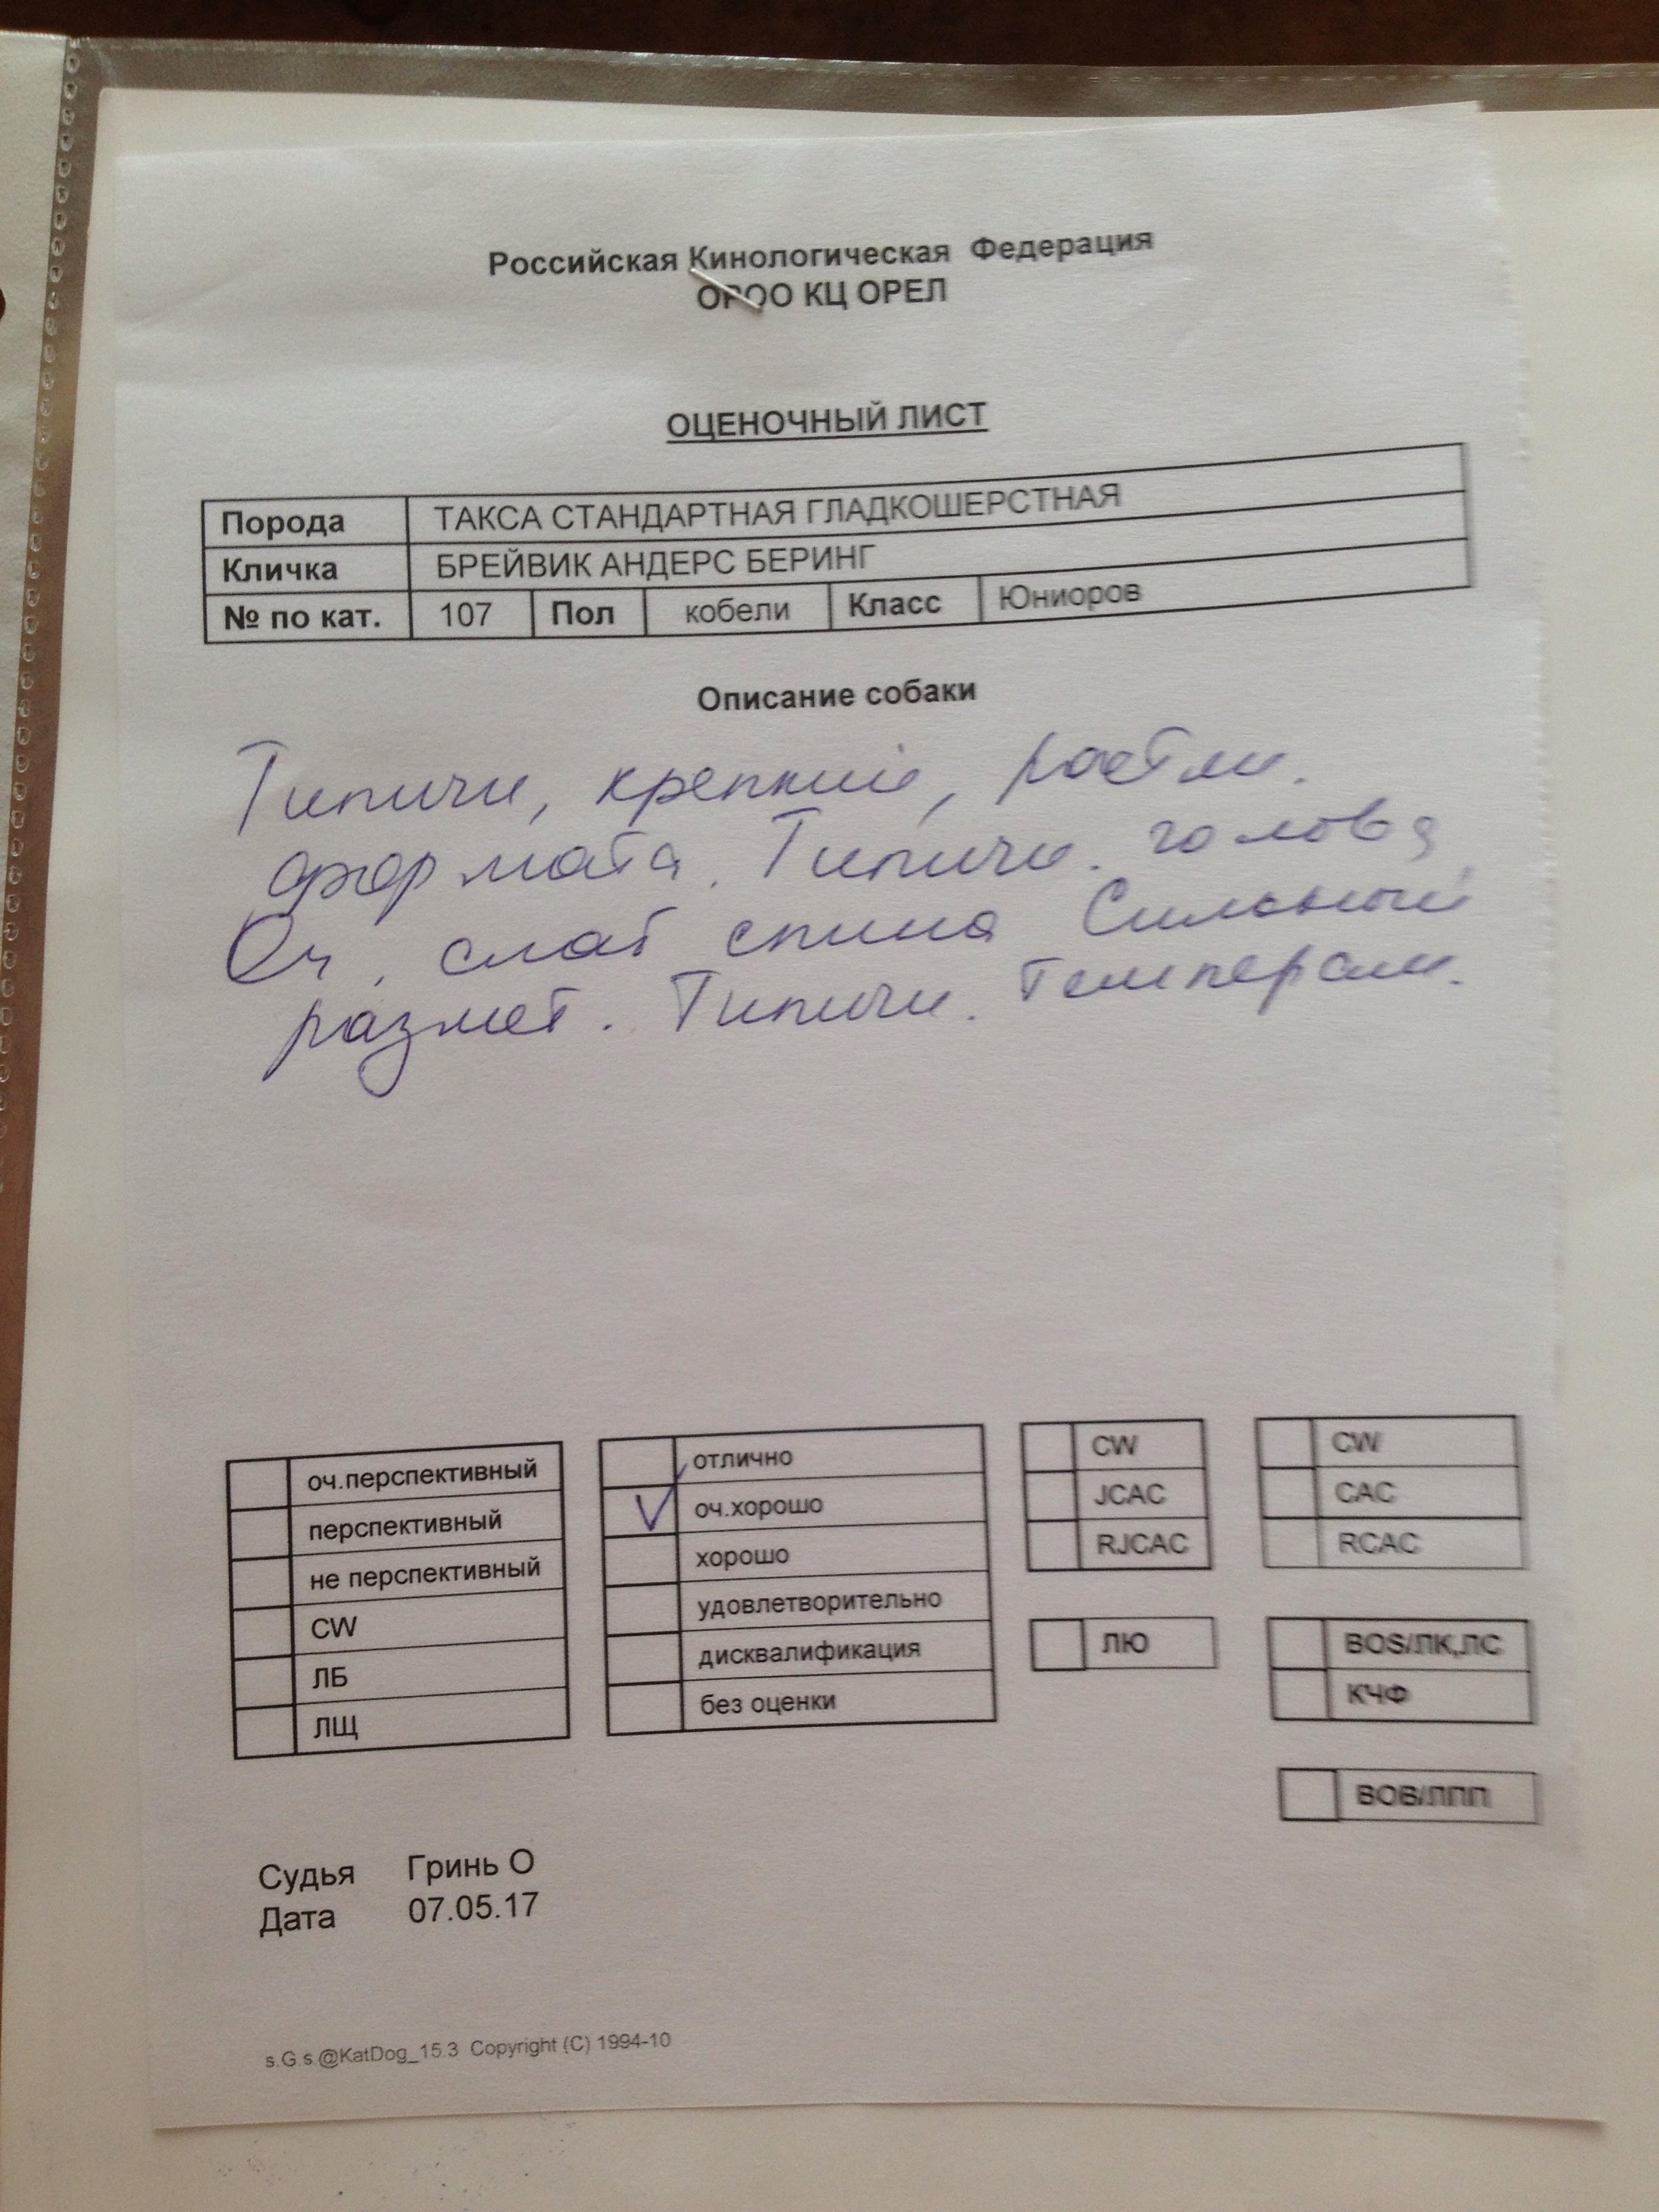 Российская Кинологическая Федерация
ОРОО КЦ ОРЕЛ
ОЦЕНОЧНЫЙ ЛИСТ
Порода ТАКСА СТАНДАРТНАЯ ГЛАДКОШЕРСТНАЯ
Кличка БРЕЙВИК АНДЕРС БЕРИНГ
№ по кат. 107 Пол кобели Класс Юниоров
Описание собаки
Типичн, крепкий,
формата. Типичн. голова
Оч. слаб спина Сильный
размет. Типичн. темперам.
оч.перспективный
перспективный
не перспективный
CW
ЛБ
ЛЩ
отлично
V оч.хорошо
хорошо
удовлетворительно
дисквалификация
без оценки
CW
JCAC
RJCAC
ЛЮ
CW
CAC
RCAC
BOS/ЛК,ЛС
КЧФ
BOB/ЛПП
Судья Гринь О
Дата 07.05.17
s.G.s.@KatDog_15.3 Copyright (C) 1994-10